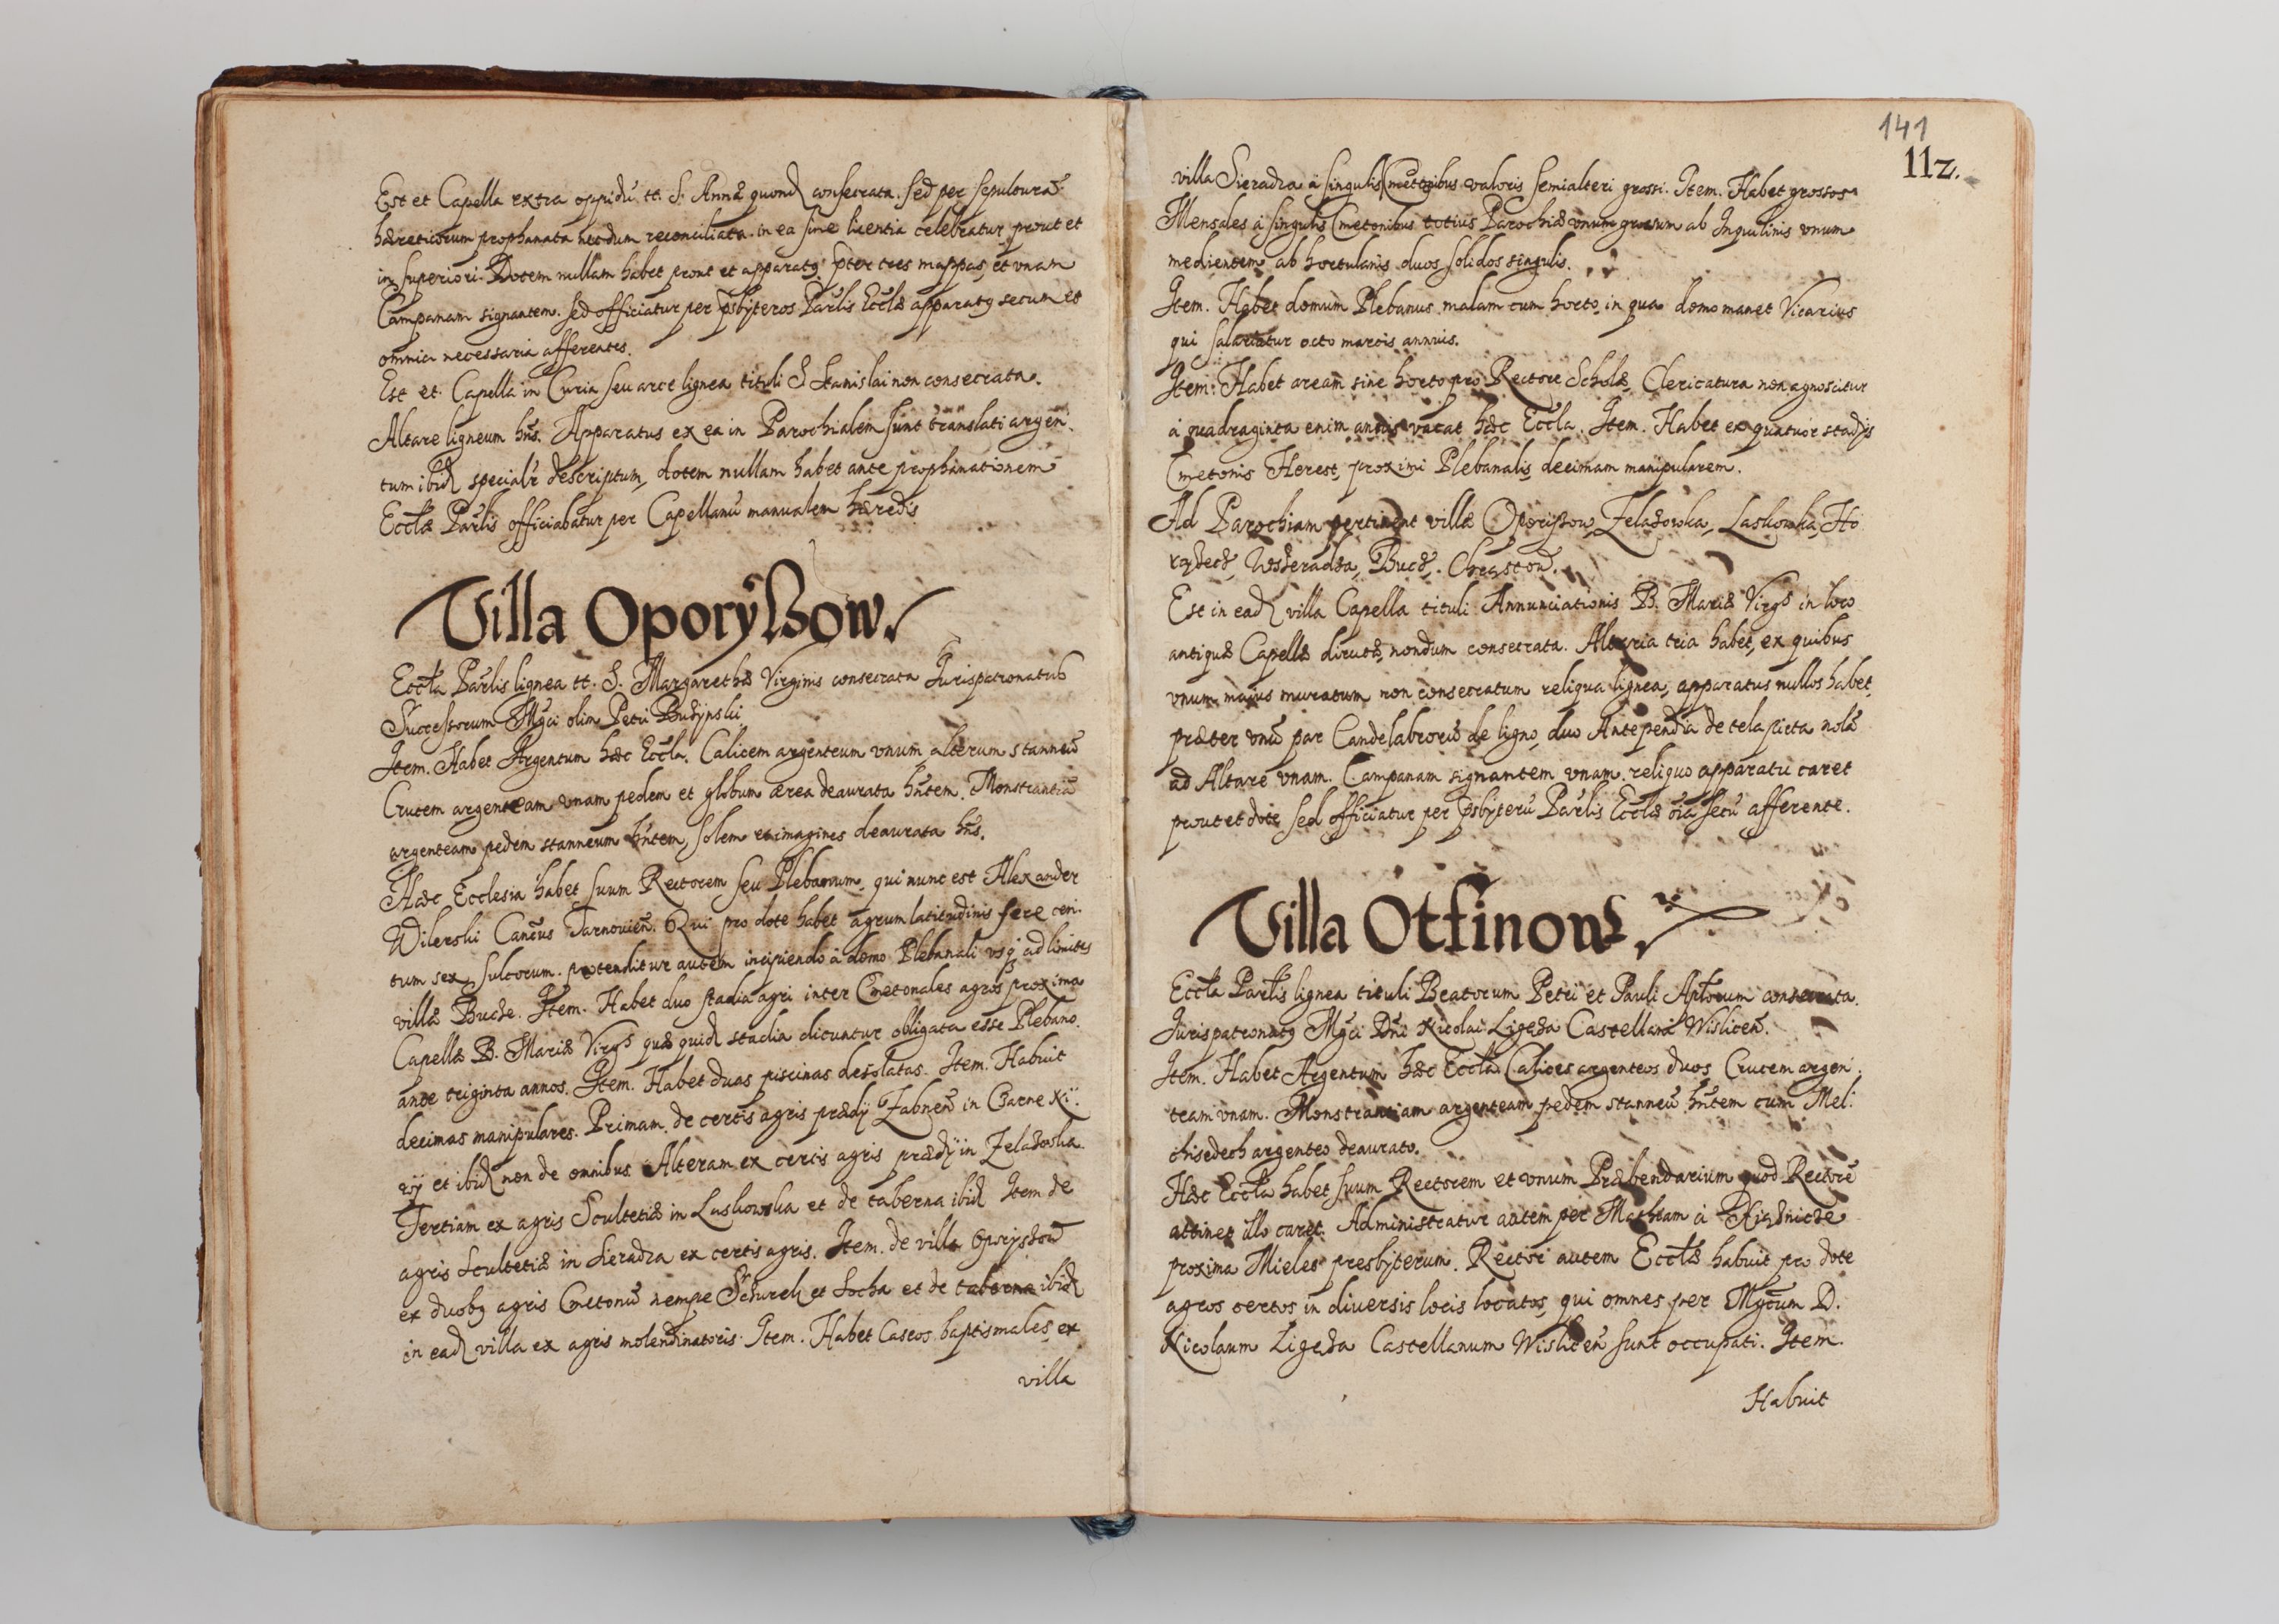 Est et Capella extra oppidū tt. S. Annæ quond consecrata. sed per sepulturā
hæreticorum prophanata necdum reconciliata. in ea sine licentia celebratur prout et
in superiori. Dotem nullam habet prout et apparatq pter tres mappas, et vnam
Campanam signantem. sed officiatur per psbyteros Parlis Ecclæ apparatq secum et
omnia necessaria afferentes.
Est et Capella in Curia seu arce lignea tituli S Stanislai non consecrata.
Altare ligneum hñs. Apparatus ex ea in Parochialem sunt translati argen
tum ibid specialr descriptum, dotem nullam habet ante prophanationem
Eccliæ Parlis officiabatur per Capellanū manualem hæredis
Villa Oporyßow.
Eccla Parlis lignea tt. S. Margarethæ Virginis consecrata Jurispatronatus
Successorum Mgci olim Petri Budzynski
Item. Habet Argentum hæc Eccla. Calicem argenteum vnum alterum stanneū
Crucem argenteam vnam pedem et globum ærea deaurata hñtem. Monstrantiā
argenteam pedem stanneum hñtem, solem et imagines deaurata hñs.
Hæc Ecclesia habet suum Rectorem seu Plebanum, qui nunc est Alexander
Wilerski Cancus Tarnouien. Qui pro dote habet agrum latitudinis fere cen.
tum sex sulcorum. protenditur autem incipiendo à domo Plebanali vsq ad limites
villæ Bucze. Item. Habet duo stadia agri inter Cmetonales agros proxima
Capellæ B. Mariæ Virgs quæ quid stadia dicuntur obligata esse Plebano
ante triginta annos. Item. Habet duas piscinas desolatas. Item. Habuit
decimas manipulares. Primam de certis agris prædij Zabnen in Czarne Ki.
rzÿ et ibid non de omnibus Alteram ex certis agris prædÿ in Zelazowka
Tertiam ex agris Scultetiæ in Laskowka et de taberna ibid Item de
agris scultetiæ in Sieradza ex certis agris. Item. de villa Oporyszow
ex duobq agris Cmetonū nempe Schurek et Socha et de taberna ibid
in ead villa ex agris molendinatoris. Item. Habet Caseos baptismales ex
villa
141
11z.
villa Sieradza à singulis Cmetonibus valoris semialteri grossi. Item. Habet grossos
Mensales à singulis Cmetonibus totius Parochiæ vnum grossum ab Inquilinis vnum
medientem ab hortulanis duos solidos singulis.
Item. Habet domum Plebanus malam cum horto, in qua domo manet Vicarius
qui salariatur octo marcis annuis.
Item. Habet aream sine horto pro Rectore Scholæ, Clericatura non agnoscitur
à quadraginta enim annis vacat hæc Eccla. Item. Habet ex quatuor stadijs
Cmetonis Herest, proximi Plebanalis, decimam manipularem.
Ad Parochiam pertinent villæ Oporyszow, Zelazowka, Laskowka, Ho
ryzdecz, Wszieradza, Bucz, Chrąstow.
Est in ead villa Capella tituli Annunciationis B. Mariæ Virgs in loco
antiquæ Capellæ dirutæ, nondum consecrata. Altaria tria habet, ex quibus
vnum maius muratum non consecratum reliqua lignea, apparatus nullos habet,
præter vnū par Candelabrorū de ligno, duo Antependia de tela picta nolā
ad Altare vnam. Campanam signantem vnam. reliquo apparatu caret
prout et dote sed officiatur per psbyterū Parlis Eccliæ oīa secū afferente.
Villa Otfinow
Eccla Parlis lignea tituli Beatorum Petri et Pauli Aplorum consecrata.
Jurispatronatq Mgci Dni Nicolai Ligęza Castellani Wislicen.
Item. Habet Argentum hæc Eccla Calices argenteos duos, Crucem argen
team vnam. Monstrantiam argenteam pedem stanneū hñtem cum Mel.
chisedech argenteo deaurato.
Hæc Eccla habet suum Rectorem et vnum Præbendarium quod Rectorē
attinet illo caret. Administratur autem per Mathiam à
proxima Mielec presbyterum. Rector autem Eccliæ habuit pro dote
agros certos in diversis locis locatos, qui omnes per Mgcum D.
Nicolaum Ligęza Castellanum Wislicen sunt occupati. Item.
Habuit